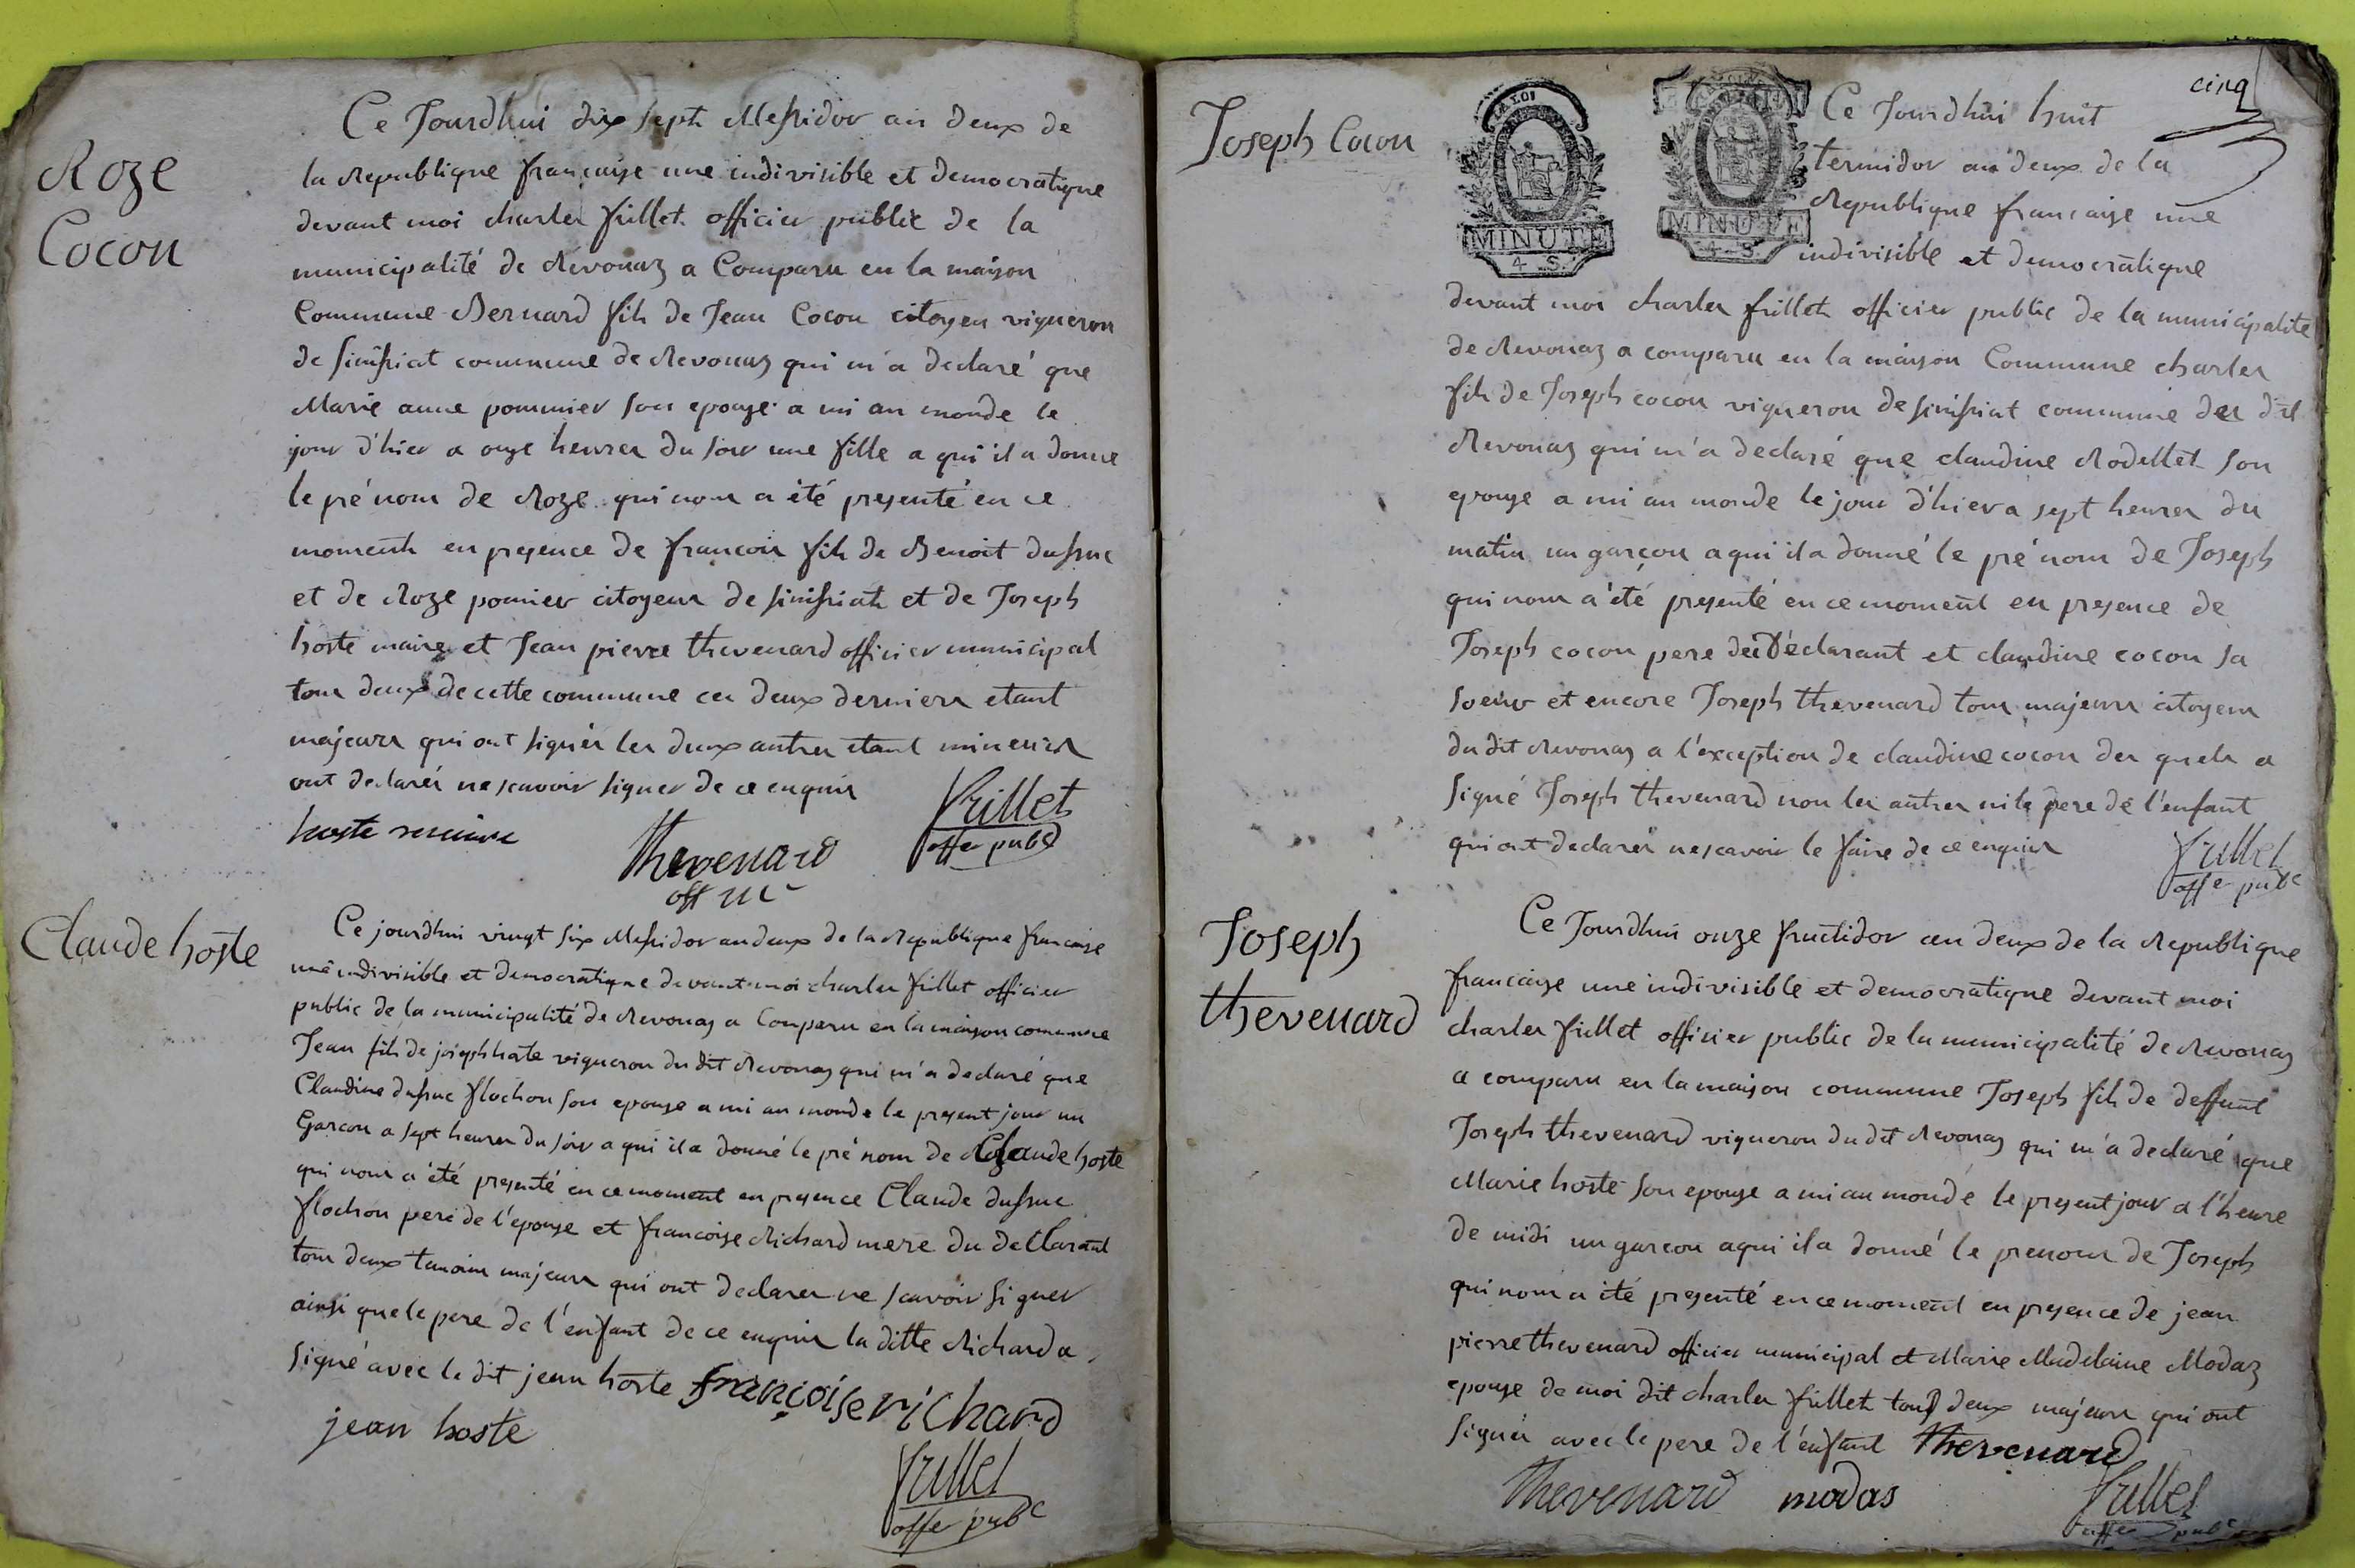 Roze
Cocon
Ce Jourdhui dix sept Messidor an deux de
la Republique française une indivisible et democratique
devant moi charles frillet officier public de la
municipalité de Revonaz a Comparu en la maison
Commune Bernard fils de Jean Cocon citoyen vigneron
de simissiat commune de Revonaz qui m'a declaré que
Marie anne pommier son epouze a mi au monde le
jour d'hier a onze heures du soir une fille a qui il a donne
le pré nom de Roze qui nous a été presenté en ce
moment en presence de francois fils de Benoit dussuc
et de Roze pomier citoyens de simissiat et de Joseph
hoste maire et Jean pierre thevenard officier municipal
tous deux de cette commune ces deux derniers etant
majeurs qui ont signés les deux autres etant mineurs
ont declarés ne scavoir signer de ce enquis
hoste maire
Thevenard
off m
frillet
offer pubc
Claude hoste
Ce jourdhui vingt six Messidor an deux de la Republique francaise
une indivisible et democratique devant moi charles frillet officier
public de la municipalité de Revonaz a Comparu en la maison commune
Jean fils de joseph hoste vigneron du dit Revonaz qui m'a declaré que
Claudine dussuc flochon son epouze a mi au monde le present jour un
Garcon a sept heures du soir a qui il a donné le pré nom de Claude hoste
qui nous a été presenté en ce moment en presence Claude dussuc
flochon pere de l'epouze et francoise Richard mere du declarant
tous deux temoins majeurs qui ont declarer ne scavoir signer
ainsi que le pere de l'enfant de ce enquis la ditte Richard a
signé avec le dit jean hoste françoise richard
jean hoste
frillet
offer pubc
cinq
Joseph Cocon
MINUTE
4. S.
MINUTE
4. S.
Ce Jourdhui huit
termidor an deux de la
Republique francaize une
indivisible et democratique
devant moi charles frillet officier public de la municipalité
de Revonaz a comparu en la maison Commune charles
fils de Joseph cocon vigneron de simissiat commune du dit
Revonaz qui m'a declaré que claudine Rodellet son
epouze a mi au monde le jour d'hier a sept heures du
matin un garçon a qui il a donné le pré nom de Joseph
qui nous a été presenté en ce moment en presence de
Joseph cocon pere du déclarant et claudine cocon sa
soeur et encore Joseph thevenard tous majeurs citoyens
du dit Revonaz a l'exception de claudine cocon des quels a
signé Joseph thevenard non les autres ni le pere de l'enfant
qui ont declarés ne scavoir le faire de ce enquis
frillet
offer pubc
Joseph
thevenard
Ce Jourdhui onze fructidor an deux de la Republique
francaize une indivisible et democratique devant moi
charles frillet officier public de la municipalité de Revonaz
a comparu en la maison commune Joseph fils de deffunt
Joseph thevenard vigneron du dit Revonaz qui m'a declaré que
Marie hoste son epouze a mi au monde le present jour a l'heure
de midi un garcon a qui il a donné le prenom de Joseph
qui nous a été presenté en ce moment en presence de jean
pierre thevenard officier municipal et Marie Madelaine Modaz
epouze de moi dit charles frillet tous deux majeurs qui ont
signés avec le pere de l'enfant Thevenard
Thevenard modas
frillet
offer pubc